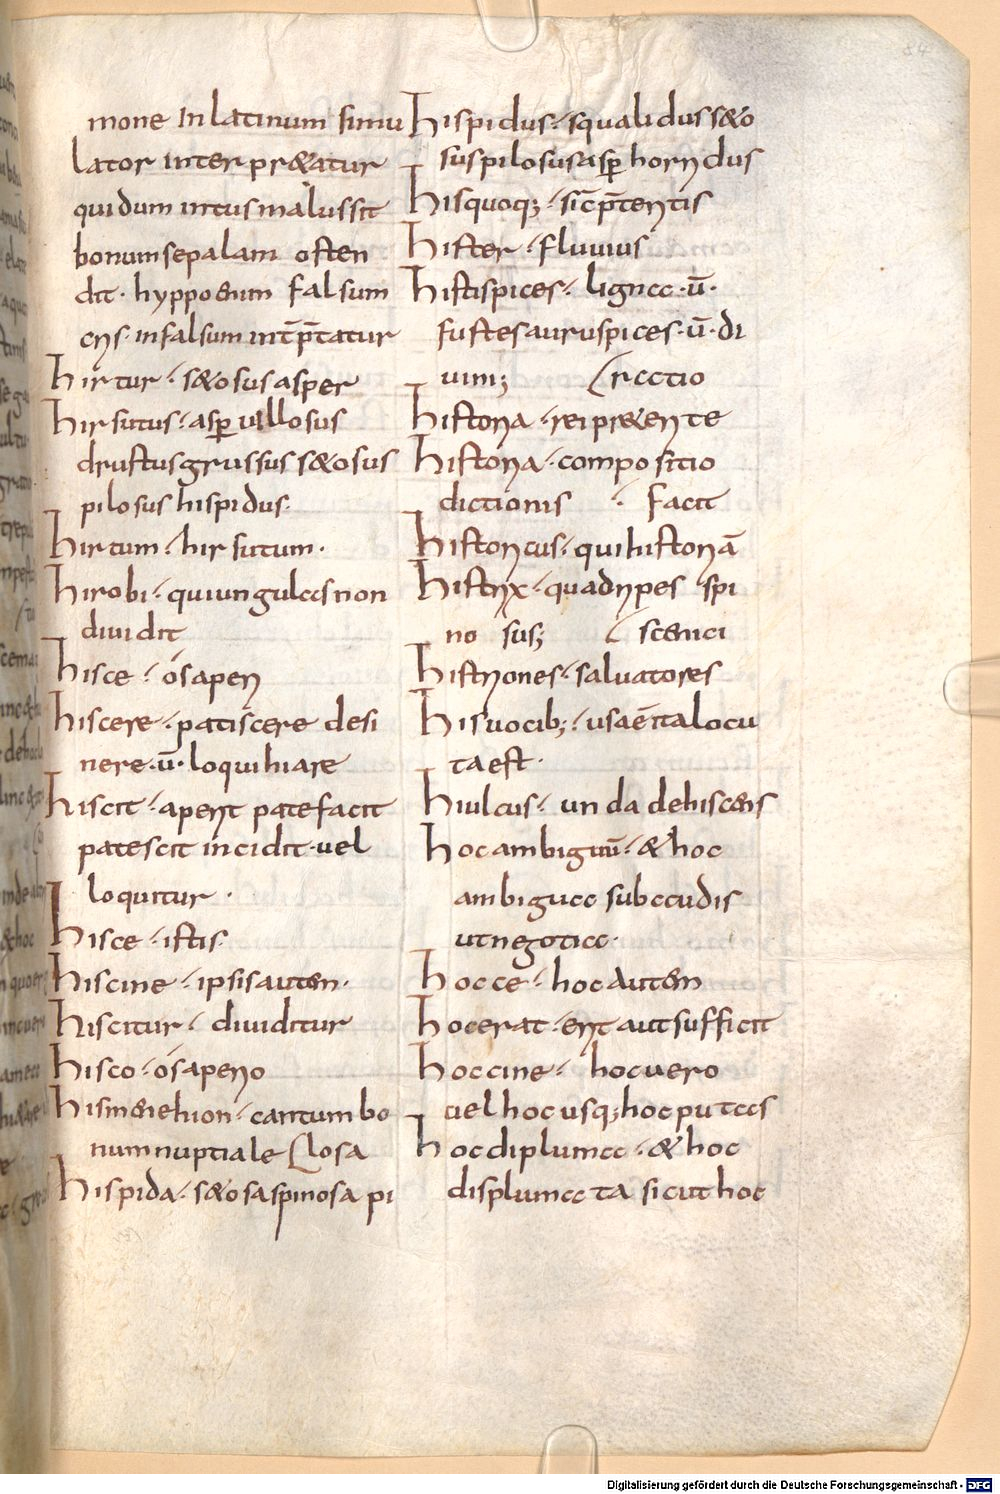 mone In latinum simu
lator inter pr&atur
quidum intus malus sit
bonum se palam osten
dit · hyppo enim falsum
cris · in falsum int̄p̄tatur
hirtur · s&osus asper
hirsutus · asp̄ villosus
drustus grussus s&osus
pilosus hispidus·
hirtum · hirsutum ·
hirobi · qui ungulas non
diuidit
hisce · os aperi
hiscere · patiscere desi
nere · ū · loqui hiare
hiscit · aperit patefacit
patescit incidit · uel
loquitur ·
hisce · istis·
hiscine · ipsis autem·
hiscitur · diuiditur
hisco · os aperio
hismenehion · cantum bo
num nuptiale Closa
hispida · s&osa spinosa pi
hispidus · squalidus s&o
sus pilosus asp̄ horridus
hisquoq; · sic̄ p̄tentis
hister · fluuius
histispices · lignea · ū ·
fustes auruspices · ū · di
uini; (rectio
historia · rei pr&erite
historia · compositio
dictionis facit
historicus · qui historiā
histrix · quadripes spi
no sus; scenici
histriones · saluatores
his uocib; · usa ēita locu
ta est ·
hiulcus · unda dehiscens
hoc ambiguū · & hoc
ambigua sub audis
ut negotia·
hocce · hoc autem
hocerat · erit aut sufficit
hoccine · hoc uero
uel hoc usq; hoc putas
hoc diploma · & hoc
displumata sicut hoc
84
Digitalisierung gefördert durch die Deutsche Forschungsgemeinschaft - DFG